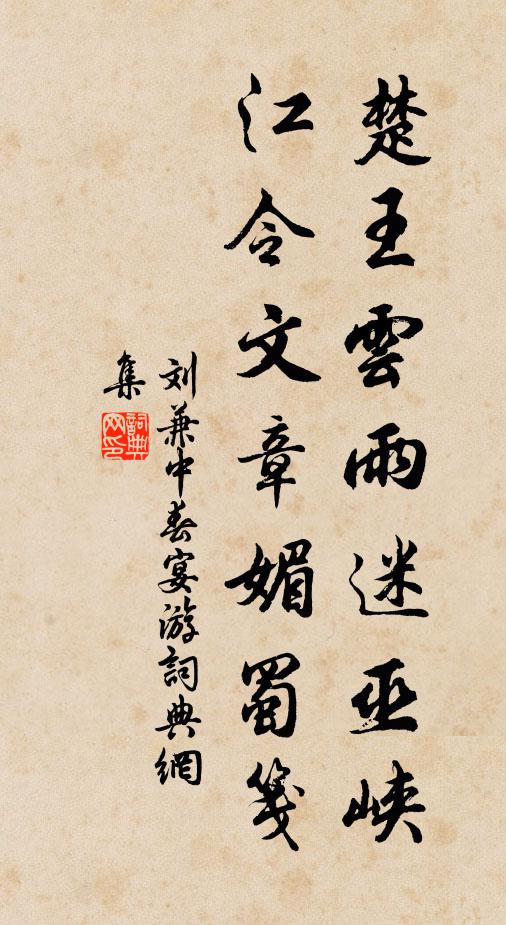 楚王雲雨迷巫峽
江令文章媚蜀箋
刘兼中春宴游詞典網
集
詞典网印